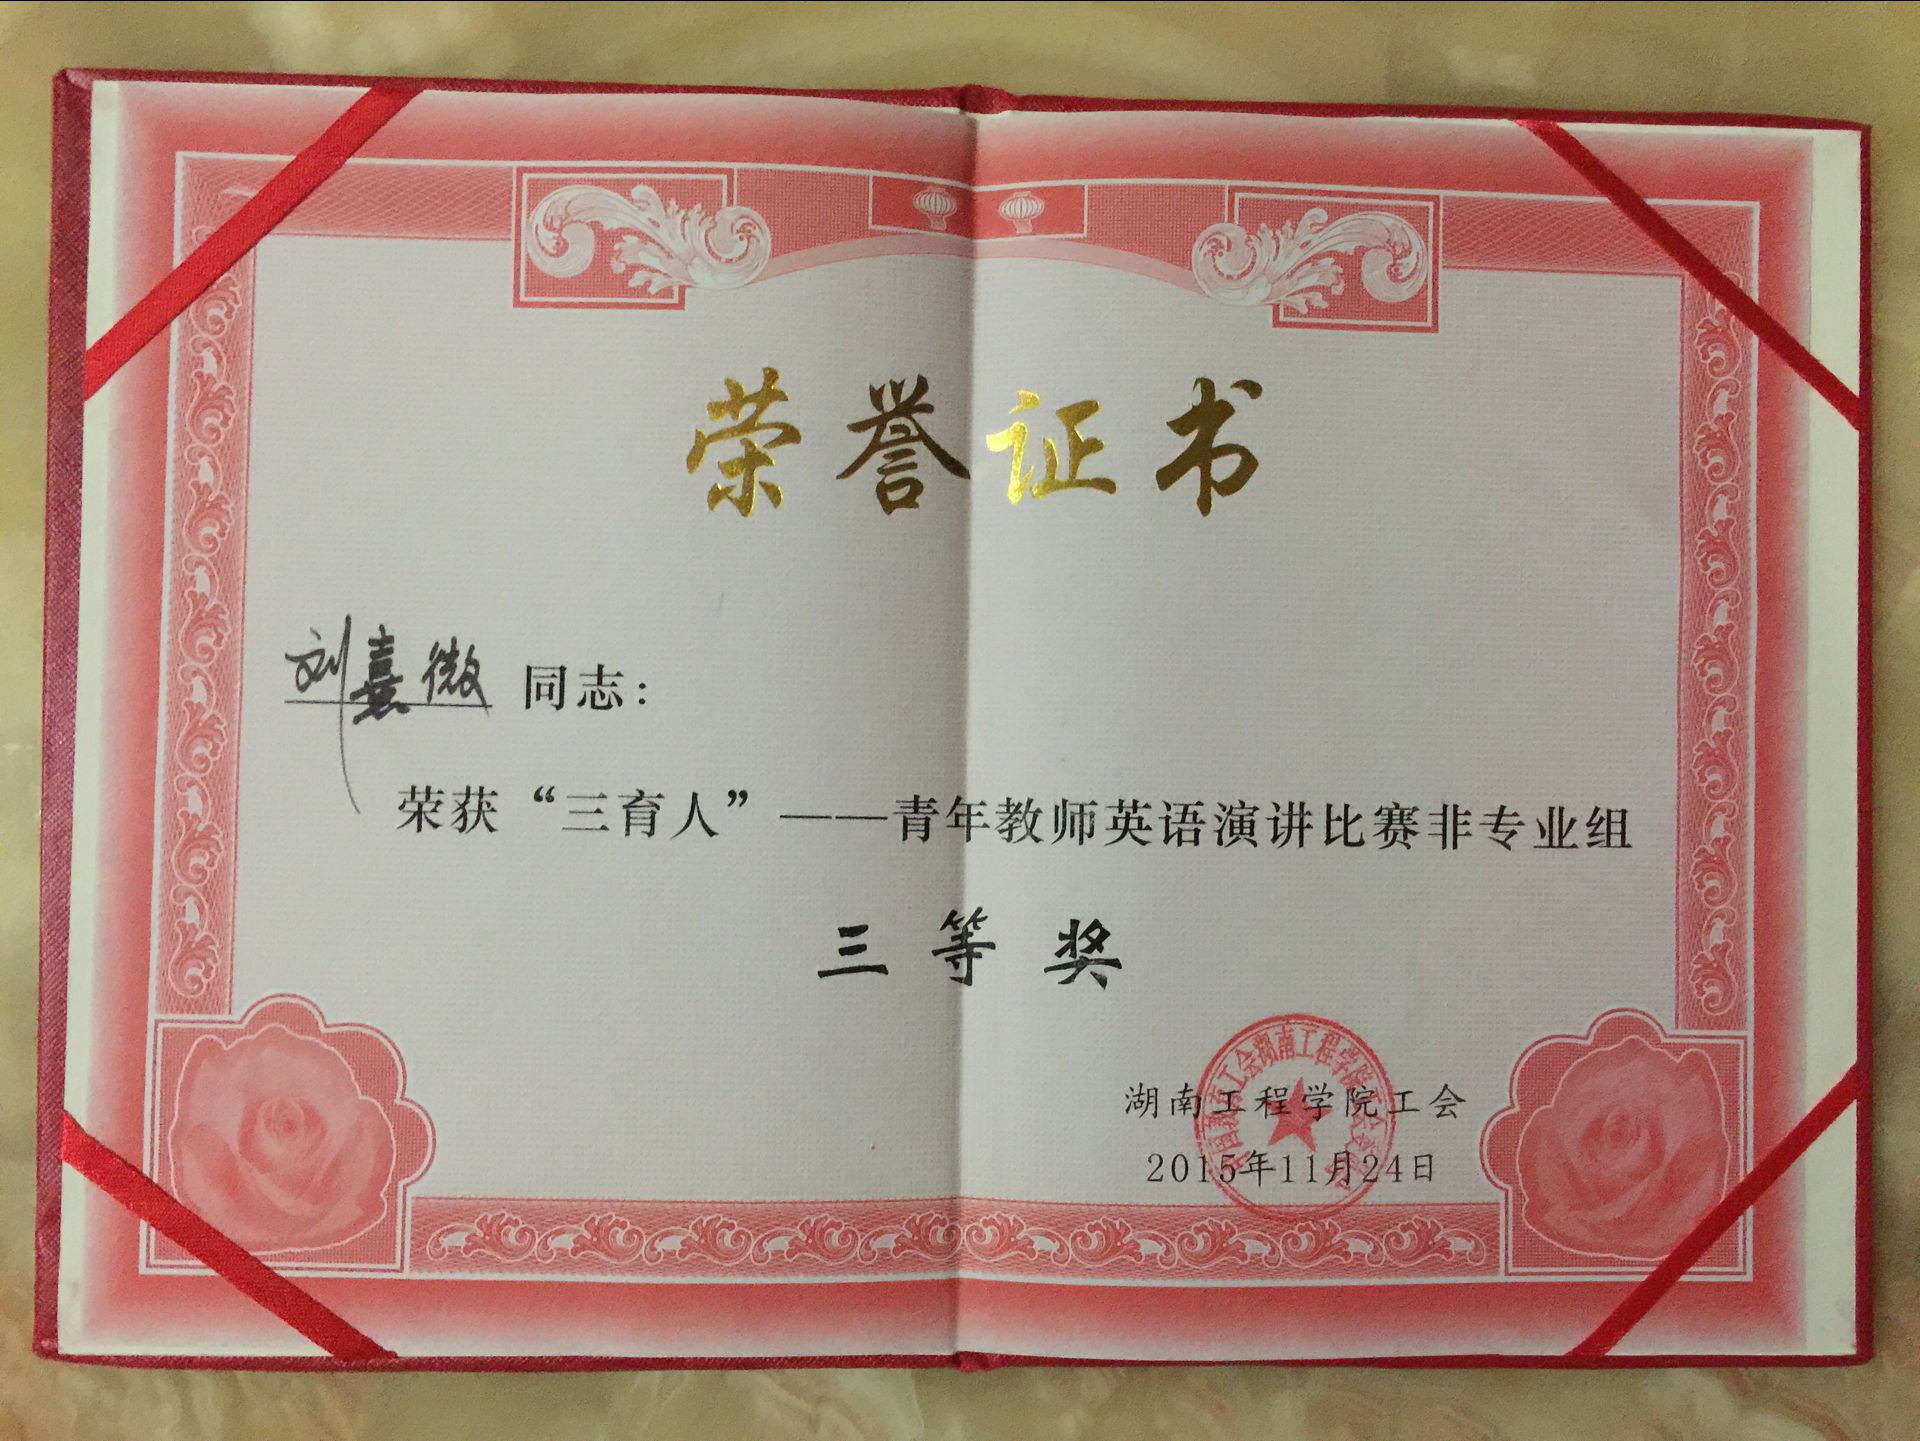 荣誉证书
刘熹微 同志：
荣获“三育人”——青年教师英语演讲比赛非专业组
三等奖
湖南工程学院工会
2015年11月24日